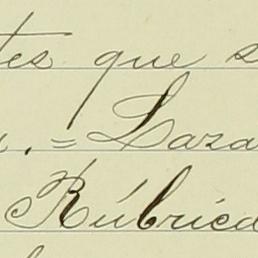 tes que s
. = Laza
Rúbrica